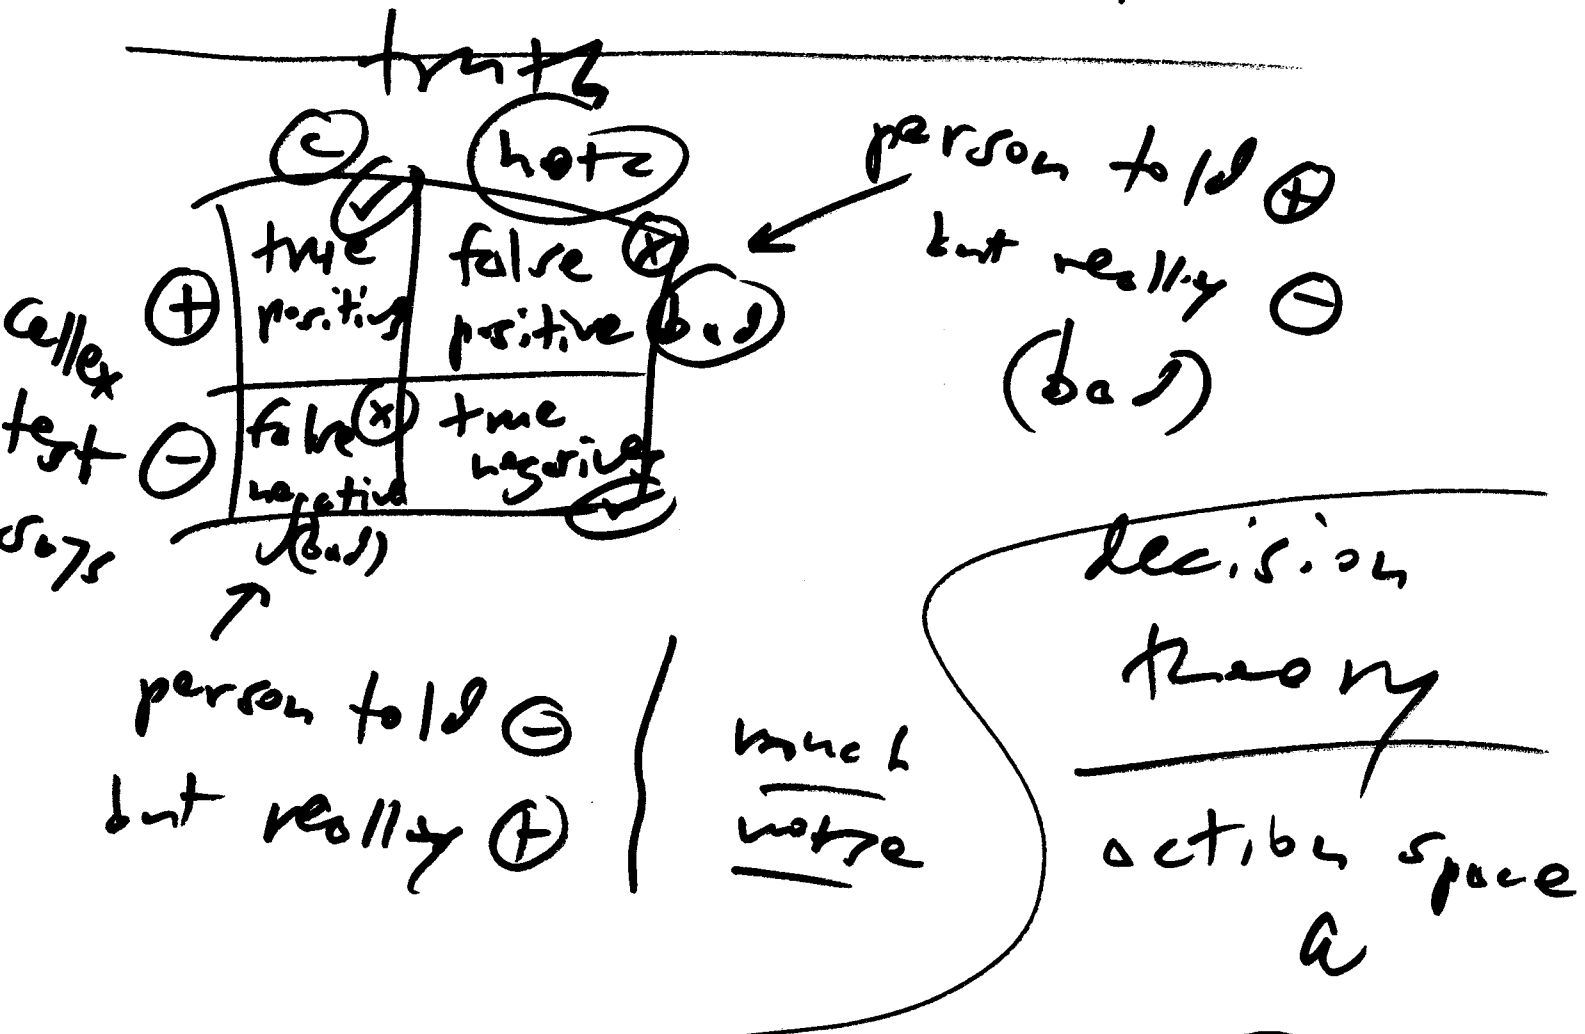 truth
C
not C
true
positive
false
positive
bad
Cellex
test
says
+
−
false
negative
(bad)
true
negative
person told +
but really −
(bad)
person told −
but really +
much
worse
decision
theory
action space
a